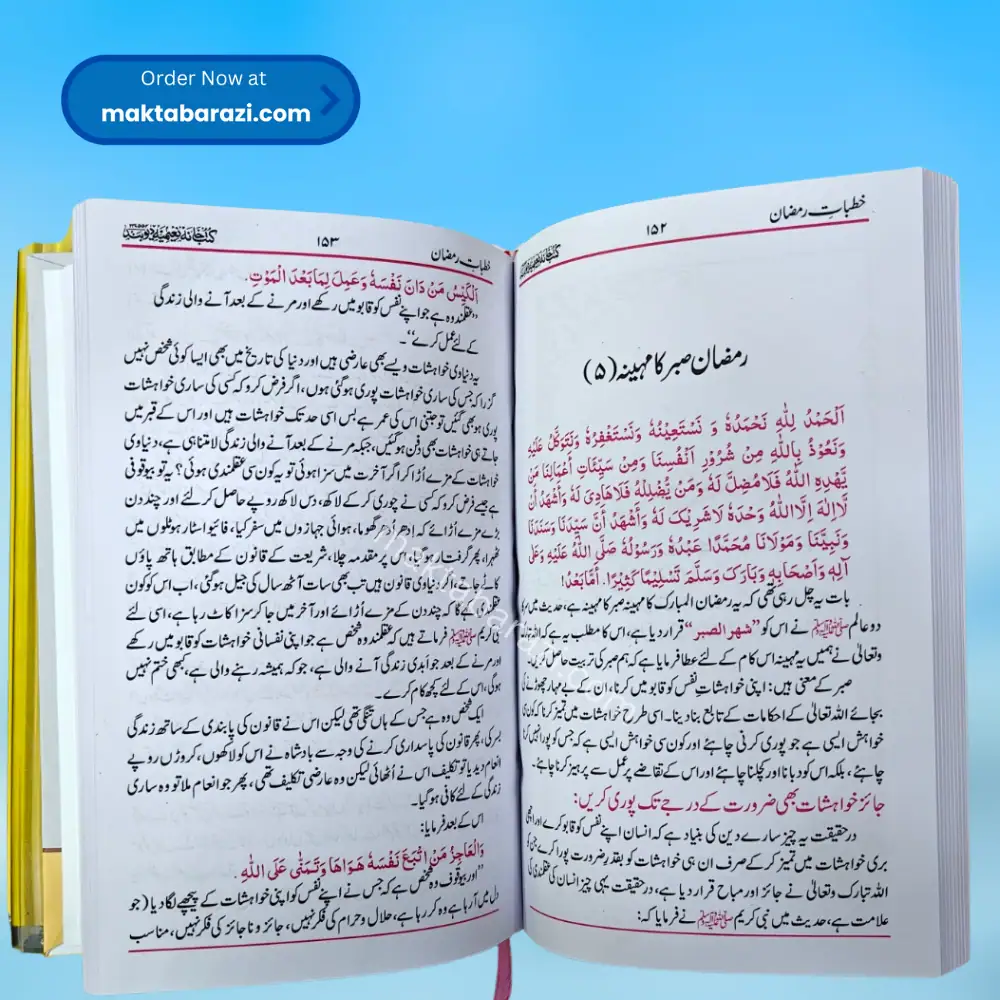 Order Now at
maktabarazi.com
خطباتِ رمضان
۱۵۲
رمضان صبر کا مہینہ (۵)
اَلْحَمْدُ لِلّٰهِ نَحْمَدُهٗ وَ نَسْتَعِيْنُهٗ وَنَسْتَغْفِرُهٗ وَنَتَوَكَّلُ عَلَيْهِ
وَنَعُوْذُ بِاللّٰهِ مِنْ شُرُوْرِ اَنْفُسِنَا وَمِنْ سَيِّئَاتِ أَعْمَالِنَا مَنْ
يَّهْدِهِ اللّٰهُ فَلَامُضِلَّ لَهٗ وَمَنْ يُّضْلِلْهُ فَلَاهَادِىَ لَهٗ وَأَشْهَدُ أَنْ
لَّا اِلٰهَ اِلَّا اللّٰهُ وَحْدَهٗ لَاشَرِيْكَ لَهٗ وَأَشْهَدُ أَنَّ سَيِّدَنَا وَسَنَدَنَا
وَنَبِيَّنَا وَمَوْلَانَا مُحَمَّدًا عَبْدُهٗ وَرَسُوْلُهٗ صَلَّى اللّٰهُ عَلَيْهِ وَعَلٰى
آلِهٖ وَاَصْحَابِهٖ وَبَارَكَ وَسَلَّمَ تَسْلِيْمًا كَثِيْرًا. أَمَّابَعْدُ!
بات یہ چل رہی تھی کہ یہ رمضان المبارک کا مہینہ صبر کا مہینہ ہے، حدیث میں سرکار
دو عالم ﷺ نے اس کو ”شهر الصبر“ قرار دیا ہے، اس کا مطلب یہ ہے کہ اللہ تبارک
وتعالیٰ نے ہمیں یہ مہینہ اس کام کے لئے عطا فرمایا ہے کہ ہم صبر کی تربیت حاصل کریں۔
صبر کے معنی ہیں: اپنی خواہشاتِ نفس کو قابو میں کرنا، ان کے بے مہار چھوڑنے کی
بجائے اللہ تعالیٰ کے احکامات کے تابع بنا دینا۔ اسی طرح خواہشات میں تمیز کرنا کہ کون سی
خواہش ایسی ہے جو پوری کرنی چاہئے اور کون سی خواہش ایسی ہے کہ جس کو پورا نہیں کرنا
چاہئے، بلکہ اس کو دبانا اور کچلنا چاہئے اور اس کے تقاضے پر عمل سے پرہیز کرنا چاہئے۔
جائز خواہشات بھی ضرورت کے درجے تک پوری کریں:
درحقیقت یہ چیز سارے دین کی بنیاد ہے کہ انسان اپنے نفس کو قابو کرے اور اچھی
بری خواہشات میں تمیز کر کے صرف ان ہی خواہشات کو بقدرِ ضرورت پورا کرے جن کو
اللہ تبارک وتعالیٰ نے جائز اور مباح قرار دیا ہے، درحقیقت یہی چیز انسان کی عقلمندی کی
علامت ہے، حدیث میں نبی کریم ﷺ نے فرمایا کہ:
خطباتِ رمضان
۱۵۳
اَلْكَيِّسُ مَنْ دَانَ نَفْسَهٗ وَعَمِلَ لِمَا بَعْدَ الْمَوْتِ.
”عقلمند وہ ہے جو اپنے نفس کو قابو میں رکھے اور مرنے کے بعد آنے والی زندگی
کے لئے عمل کرے“۔
یہ دنیاوی خواہشات ویسے بھی عارضی ہیں اور دنیا کی تاریخ میں بھی ایسا کوئی شخص نہیں
گزرا کہ جس کی ساری خواہشات پوری ہوگئی ہوں، اگر فرض کرو کہ کسی کی ساری خواہشات
پوری ہو بھی گئیں تو جتنی اس کی عمر ہے بس اسی حد تک خواہشات ہیں اور اس کے قبر میں
جاتے ہی خواہشات بھی دفن ہوگئیں، جبکہ مرنے کے بعد آنے والی زندگی لامتناہی ہے، دنیاوی
خواہشات کے مزے اُڑا کر اگر آخرت میں سزا ہوئی تو یہ کون سی عقلمندی ہوئی؟ یہ تو بیوقوفی
ہے جیسے فرض کرو کہ کسی نے چوری کر کے لاکھ، دس لاکھ روپے حاصل کر لئے اور چند دن
بڑے مزے اُڑائے کہ اِدھر اُدھر گھوما، ہوائی جہازوں میں سفر کیا، فائیو اسٹار ہوٹلوں میں
ٹھہرا، پھر گرفت ہوگئی، اس پر مقدمہ چلا، شریعت کے قانون کے مطابق ہاتھ پاؤں
کاٹے جاتے، اگر دنیاوی قانون ہیں تب بھی سات آٹھ سال کی جیل ہوگئی، اب اس کو کون
عقلمندی کہے گا کہ چند دن کے مزے اُڑائے اور آخر میں جا کر سزا کاٹ رہا ہے، اسی لئے
نبی کریم ﷺ فرماتے ہیں کہ عقلمند وہ شخص ہے جو اپنی نفسانی خواہشات کو قابو میں رکھے
اور مرنے کے بعد جو ابدی زندگی آنے والی ہے، جو کہ ہمیشہ رہنے والی ہے، کبھی ختم نہیں
ہوگی، اس کے لئے کچھ کام کرے۔
ایک شخص وہ ہے جس کے ہاں تنگی تھی لیکن اس نے قانون کی پابندی کے ساتھ زندگی
بسر کی، پھر قانون کی پاسداری کرنے کی وجہ سے بادشاہ نے اس کو لاکھوں، کروڑں روپے
انعام دیدیا تو تکلیف اس نے اُٹھائی لیکن وہ عارضی تکلیف تھی، پھر جو انعام ملا تو وہ ساری
زندگی کے لئے کافی ہوگیا۔
اس کے بعد فرمایا:
وَالْعَاجِزُ مَنْ اتَّبَعَ نَفْسَهٗ هَوَاهَا وَتَمَنّٰى عَلَى اللّٰهِ.
”اور بیوقوف وہ شخص ہے کہ جس نے اپنے نفس کو اپنی خواہشات کے پیچھے لگا دیا (جو
دل میں آ رہا ہے وہ کر رہا ہے، حلال و حرام کی فکر نہیں، جائز و ناجائز کی فکر نہیں، مناسب
maktabarazi.com